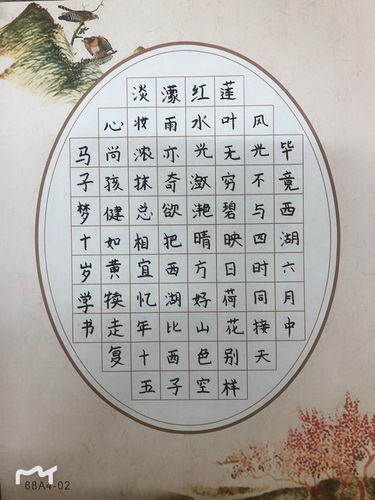 毕竟西湖六月中
风光不与四时同接天
莲叶无穷碧映日荷花别样
红水光潋滟晴方好山色空
濛雨亦奇欲把西湖比西子
淡妆浓抹总相宜忆年十五
心尚孩健如黄犊走复
马子梦十岁学书
68A4-02